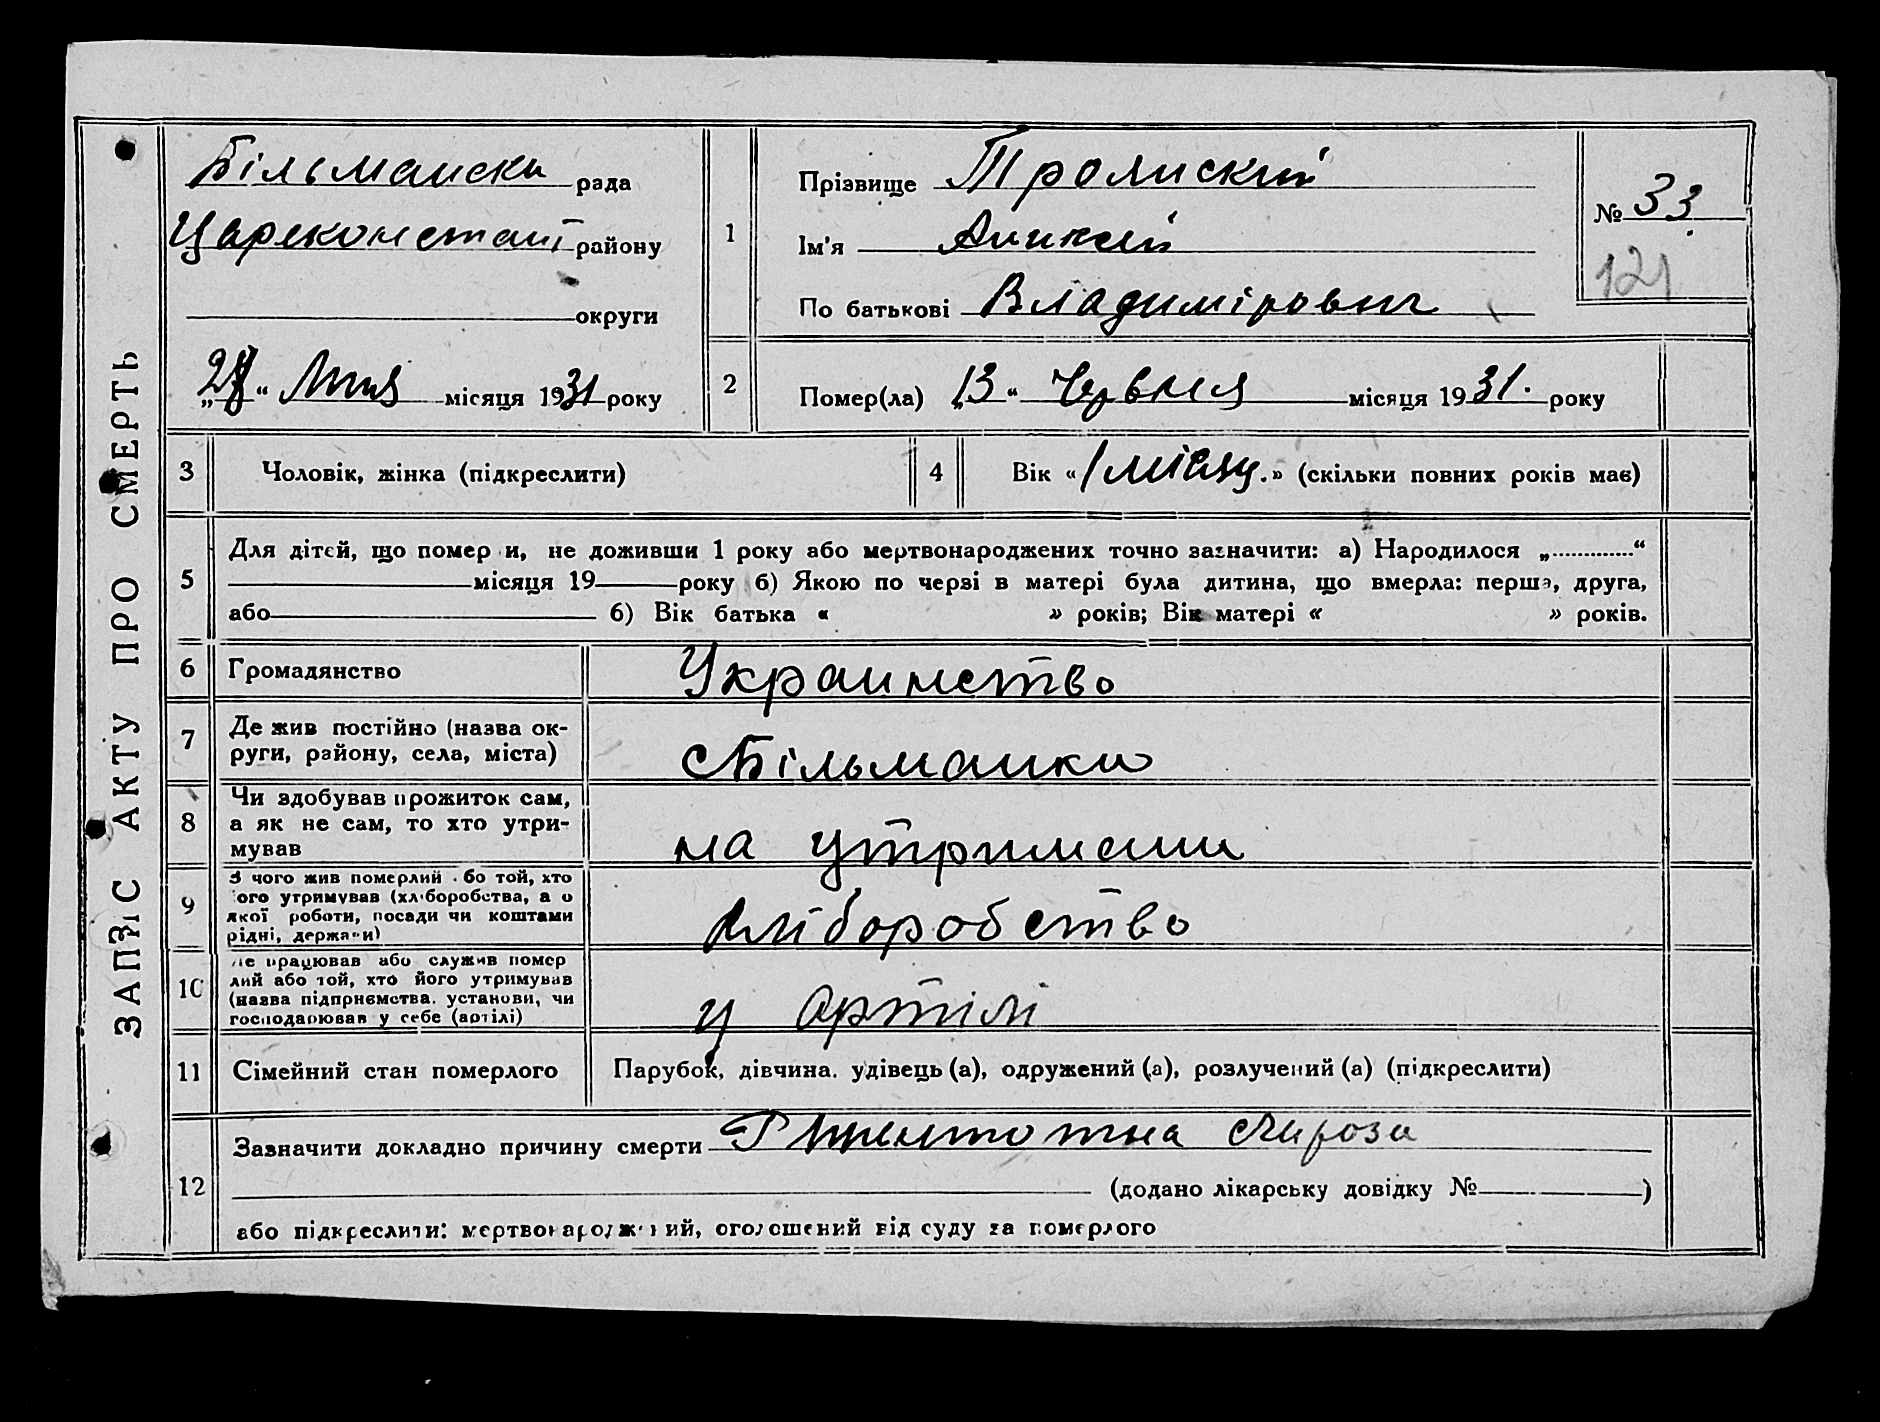 ЗАПИС АКТУ ПРО СМЕРТЬ
Більманска рада
Цареконстант району
округи
„ “ Липня місяця 1931 року
1
Прізвище
Ім'я Аликсій
По батькові Владимірович
№ 33.
121
2
Помер(ла) „13“ Червня місяця 1931. року
3 Чоловік, жінка (підкреслити)
4 Вік «1 місяц.» (скільки повних років має)
5
Для дітей, що помер и, не доживши 1 року або мертвонароджених точно зазначити: а) Народилося „.............“
місяця 19 року б) Якою по черві в матері була дитина, що вмерла: перша, друга,
або б) Вік батька « » років; Вік матері « » років.
6 Громадянство Украинство
7 Де жив постійно (назва ок-
руги, району, села, міста)
с Більманка
8 Чи здобував прожиток сам,
а як не сам, то хто утри-
мував
на утримании
9 З чого жив померлий бо той, хто
ого утримував (хліборобства, а о
якої роботи, посади чи коштами
рідні, держави)
хліборобство
10 де працював або служив помер
лий або той, хто його утримував
(назва підприємства, установи, чи
господарював у себе (артілі)
у артілі
11 Сімейний стан померлого Парубок, дівчина, удівець (а), одружений (а), розлучений (а) (підкреслити)
12
Зазначити докладно причину смерти
(додано лікарську довідку № )
або підкреслити: мертвонароджений, оголошений від суду за померлого